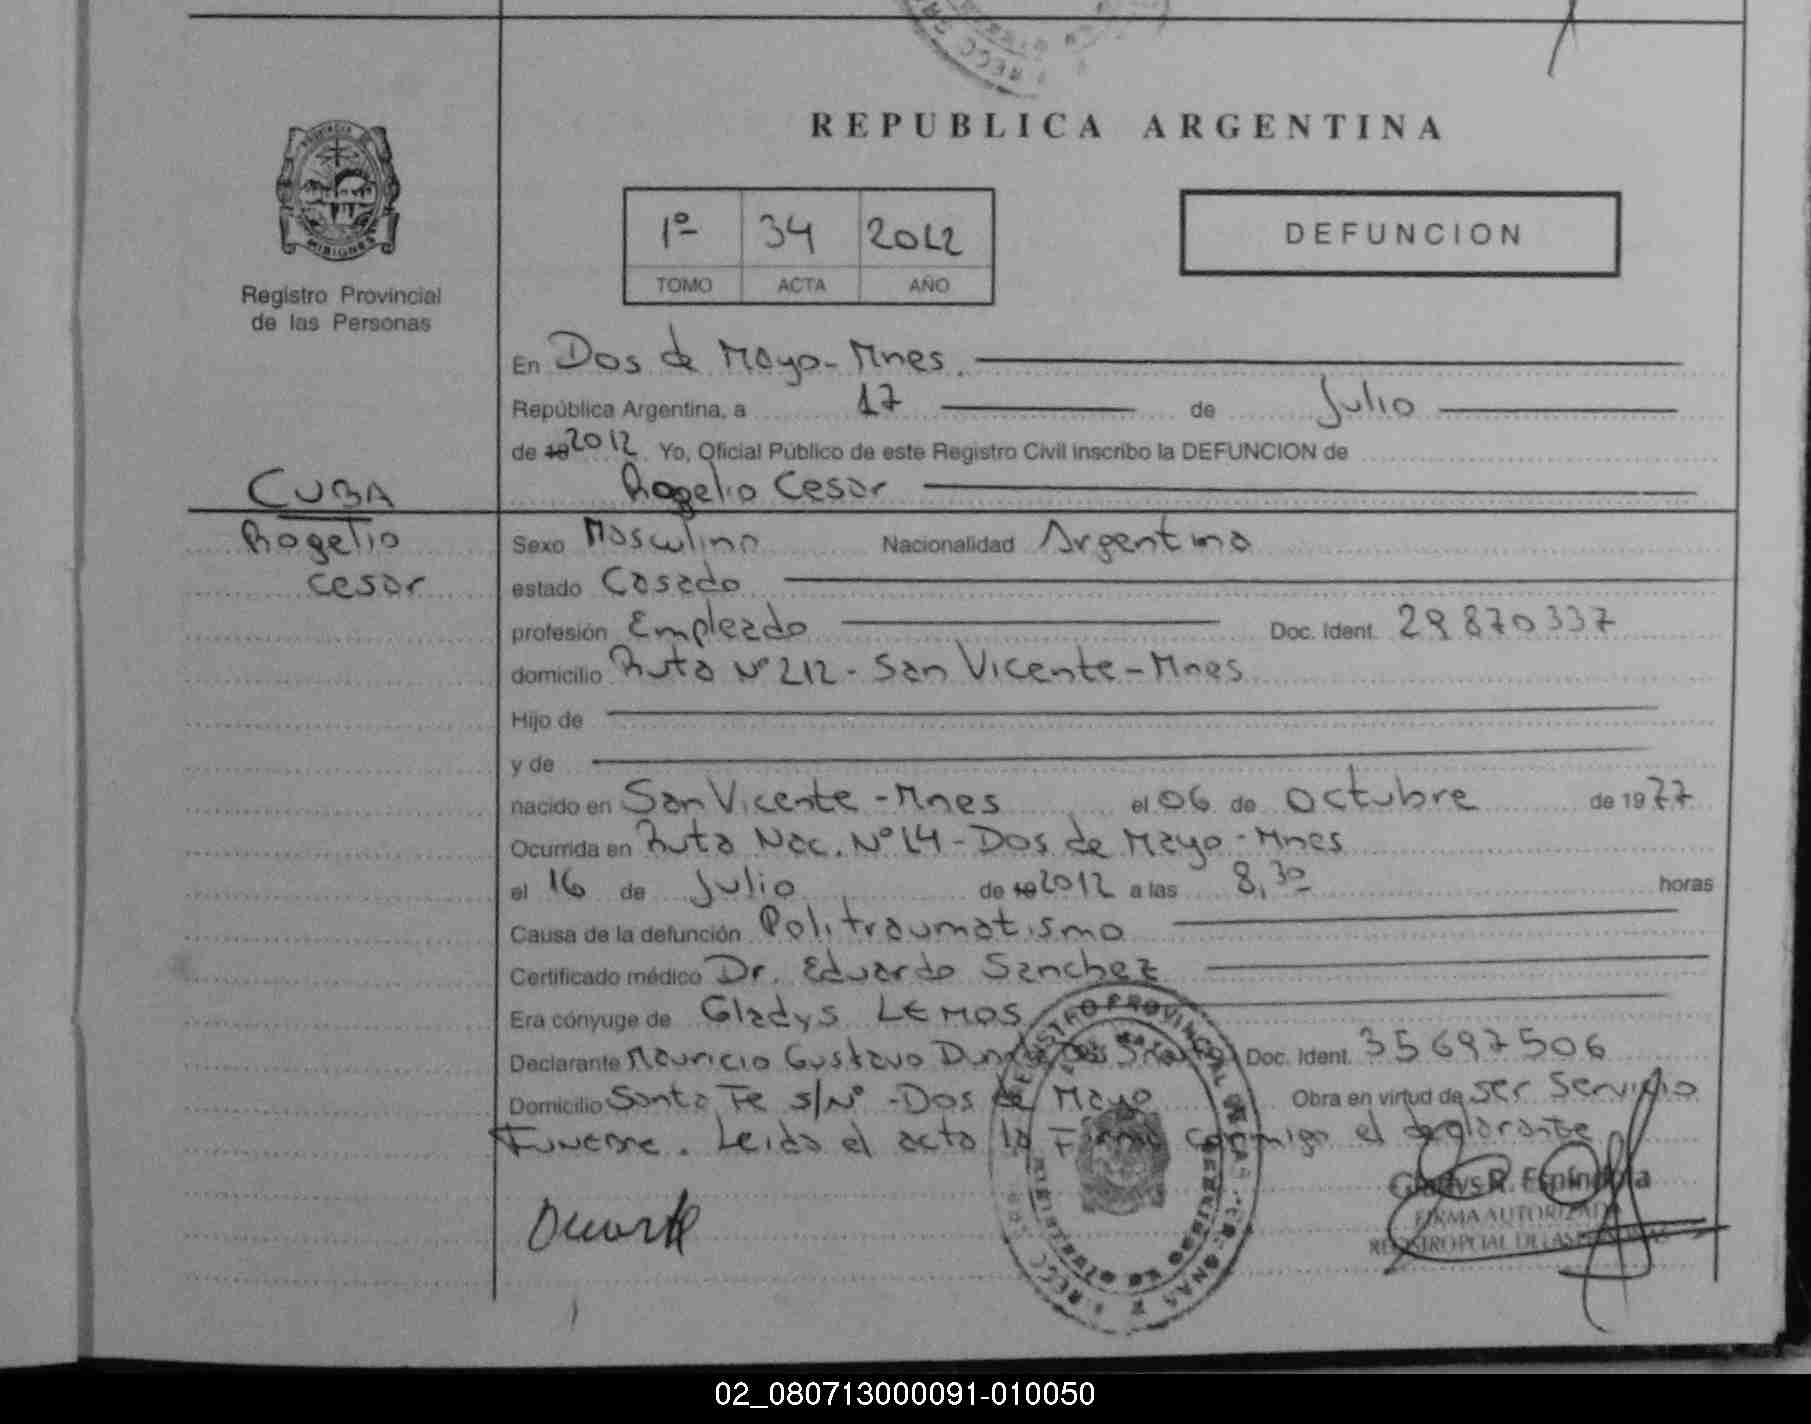 REPUBLICA ARGENTINA
MISIONES
Registro Provincial
de las Personas
1º 34 2012
TOMO ACTA AÑO
DEFUNCION
En Dos de Mayo - Mnes.
República Argentina, a 17 de Julio
de 19 2012 Yo, Oficial Público de este Registro Civil inscribo la DEFUNCION de
CUBA
Rogelio Cesar
Rogelio
Cesar
Sexo Masculino Nacionalidad Argentina
estado Casado
profesión Empleado Doc. Ident. 29870337
domicilio Ruta Nº 212 - San Vicente - Mnes
Hijo de
y de
nacido en San Vicente - Mnes el 06 de octubre de 1977
Ocurrida en Ruta Nac. Nº 14 - Dos de Mayo - Mnes
el 16 de Julio de 19 2012 a las 8,30 horas
Causa de la defunción Politraumatismo
Certificado médico Dr. Eduardo Sanchez
Era cónyuge de Gladys LEMOS
Declarante Mauricio Gustavo Doc. Ident. 35697506
Domicilio Santa Fe s/Nº - Dos de Mayo Obra en virtud de ser Servicio
Funebre. Leida el acta la Firma conmigo el declarante
Gladys R. Espíndola
FIRMA AUTORIZADA
REGISTRO PCIAL DE LAS PERSONAS
02_080713000091-010050